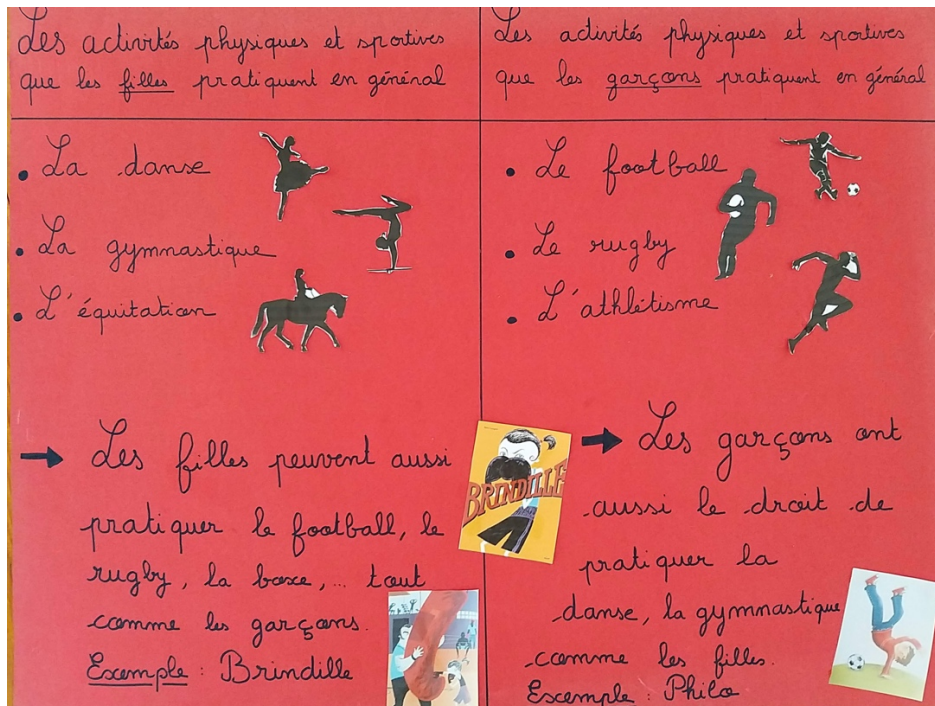 Les activités physiques et sportives
que les filles pratiquent en général
• La danse
• La gymnastique
• L'équitation
→ Les filles peuvent aussi
pratiquer le football, le
rugby, la boxe, ... tout
comme les garçons.
Exemple : Brindille
BRINDILLE
Les activités physiques et sportives
que les garçons pratiquent en général
• Le football
• Le rugby
• L'athlétisme
→ Les garçons ont
aussi le droit de
pratiquer la
danse, la gymnastique
comme les filles.
Exemple : Philo